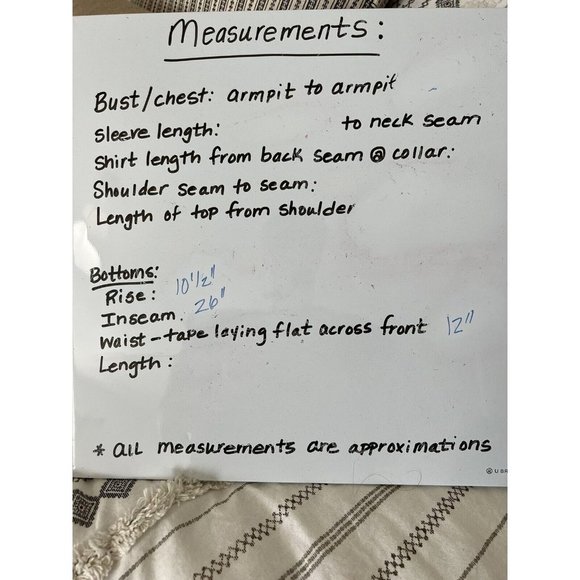 Measurements:
Bust/chest: armpit to armpit
Sleeve length: to neck seam
Shirt length from back seam @ collar:
Shoulder seam to seam:
Length of top from shoulder
Bottoms:
Rise: 10 1/2"
Inseam. 26"
Waist - tape laying flat across front 12"
Length:
* ALL measurements are approximations